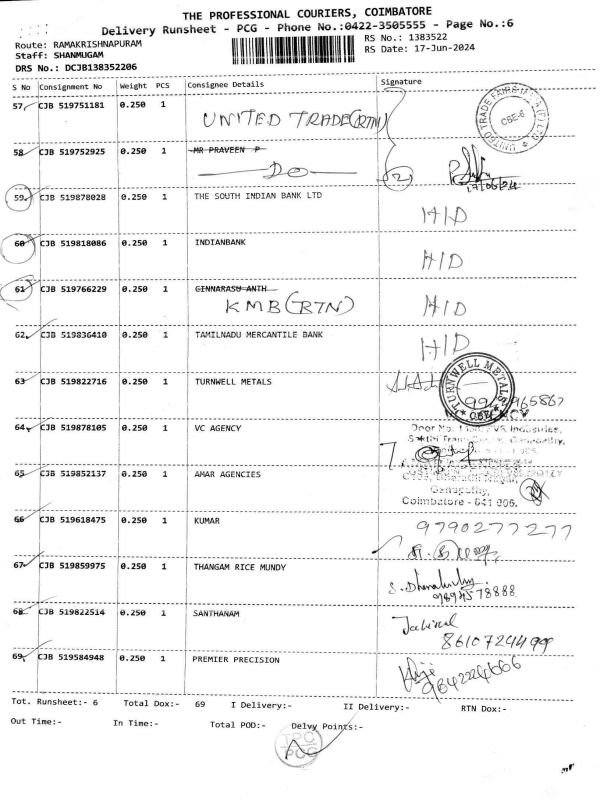 THE PROFESSIONAL COURIERS, COIMBATORE
Delivery Runsheet - PCG - Phone No.:0422-3505555 - Page No.:6
Route: RAMAKRISHNAPURAM
RS No.: 1383522
Staff: SHANMUGAM
RS Date: 17-Jun-2024
DRS No.: DCJB138352206
S No Consignment No Weight PCS Consignee Details Signature
57 CJB 519751181 0.250 1 UNITED TRADE (RTN)
UNITED TRADE FAIRS CBE-6
58 CJB 519752925 0.250 1 MR PRAVEEN P
DO (2)
17/06/24
59 CJB 519878028 0.250 1 THE SOUTH INDIAN BANK LTD
HID
60 CJB 519818086 0.250 1 INDIANBANK
HID
61 CJB 519766229 0.250 1 GINNARASU ANTH
KMB (RTN) HID
62 CJB 519836410 0.250 1 TAMILNADU MERCANTILE BANK
HID
63 CJB 519822716 0.250 1 TURNWELL METALS
TURNWELL METALS CBE
64 CJB 519878105 0.250 1 VC AGENCY
65 CJB 519852137 0.250 1 AMAR AGENCIES
Bharathi Nagar,
Ganapathy,
Coimbatore - 641 006.
66 CJB 519618475 0.250 1 KUMAR
9790277277
67 CJB 519859975 0.250 1 THANGAM RICE MUNDY
68 CJB 519822514 0.250 1 SANTHANAM
8610724499
69 CJB 519584948 0.250 1 PREMIER PRECISION
9842226666
Tot. Runsheet:- 6 Total Dox:- 69 I Delivery:- II Delivery:- RTN Dox:-
Out Time:- In Time:- Total POD:- Delvy Points:-
TPC
PCG